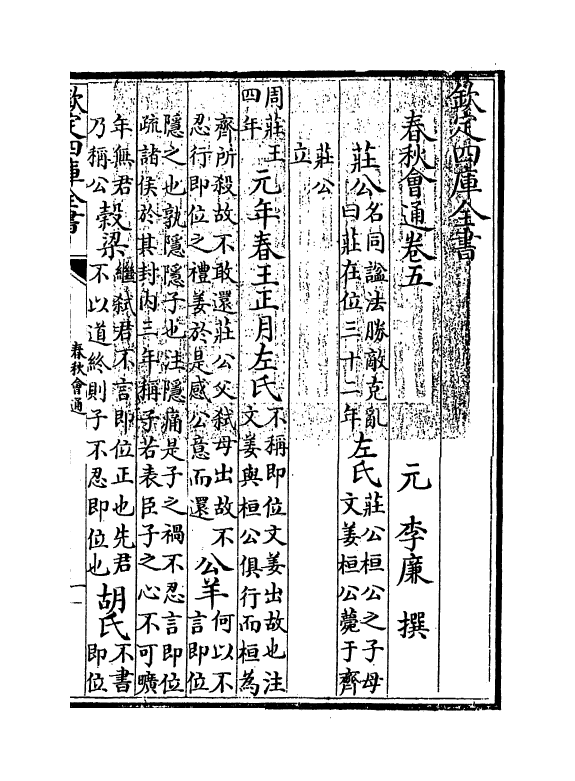 欽定四庫全書
春秋會通卷五　元　李廉　撰
莊公
名同諡法勝敵克亂
曰莊在位三十二年
左氏
莊公桓公之子母
文姜桓公薨于齊
莊公
立
周莊王
四年
元年春王正月左氏
不稱即位文姜出故也注
文姜與桓公俱行而桓為
齊所殺故不敢還莊公父弑母出故不
忍行即位之禮姜於是感公意而還
公羊
何以不
言即位
隱之也孰隱隱子也注隱痛是子之禍不忍言即位
疏諸侯於其封内三年稱子若表臣子之心不可曠
年無君
乃稱公
穀梁
繼弑君不言即位正也先君
不以道終則子不忍即位也
胡氏
不書
即位
欽定四庫全書
春秋會通
一